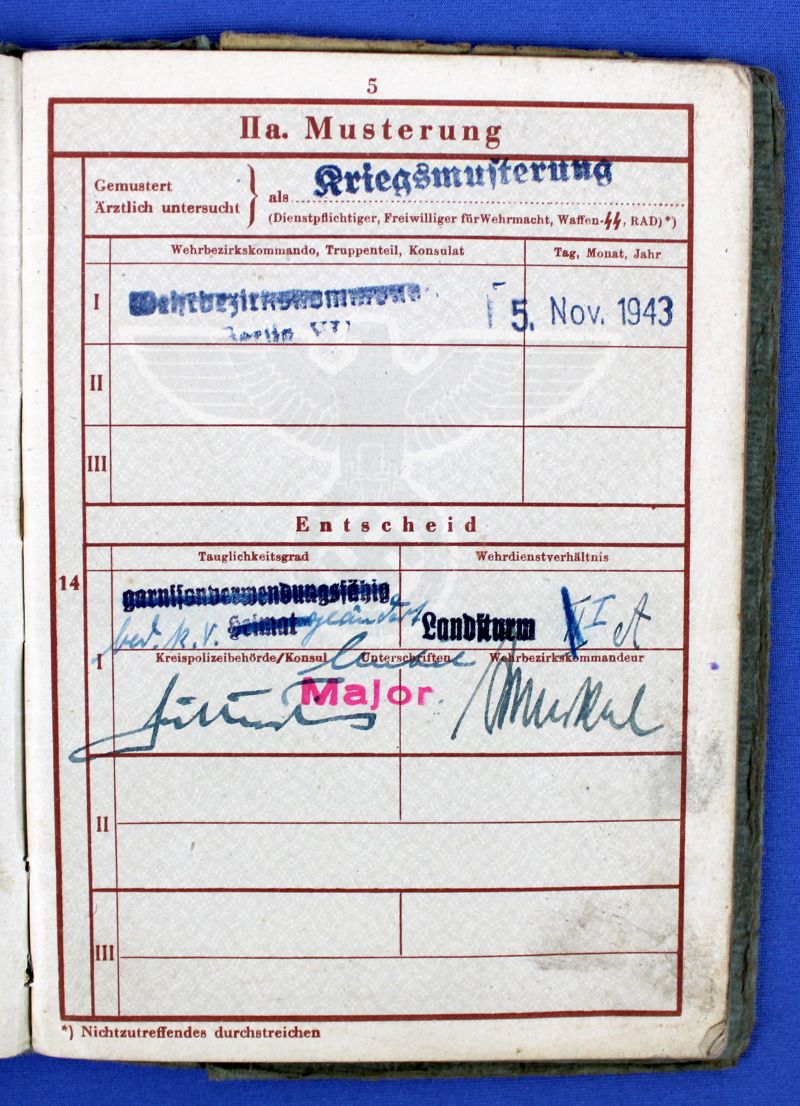 5
IIa. Musterung
Gemustert
Ärztlich untersucht
als Kriegsmusterung
(Dienstpflichtiger, Freiwilliger für Wehrmacht, Waffen-ᛋᛋ, RAD)*)
Wehrbezirkskommando, Truppenteil, Konsulat
Tag, Monat, Jahr
I
Wehrbezirkskommando
Berlin
5. Nov. 1943
II
III
Entscheid
Tauglichkeitsgrad
Wehrdienstverhältnis
14
garnisonverwendungsfähig
Heimat geändert
bed. k.v.
Landsturm I A
I
Kreispolizeibehörde/Konsul
Unterschriften
Wehrbezirkskommandeur
Major
II
III
*) Nichtzutreffendes durchstreichen